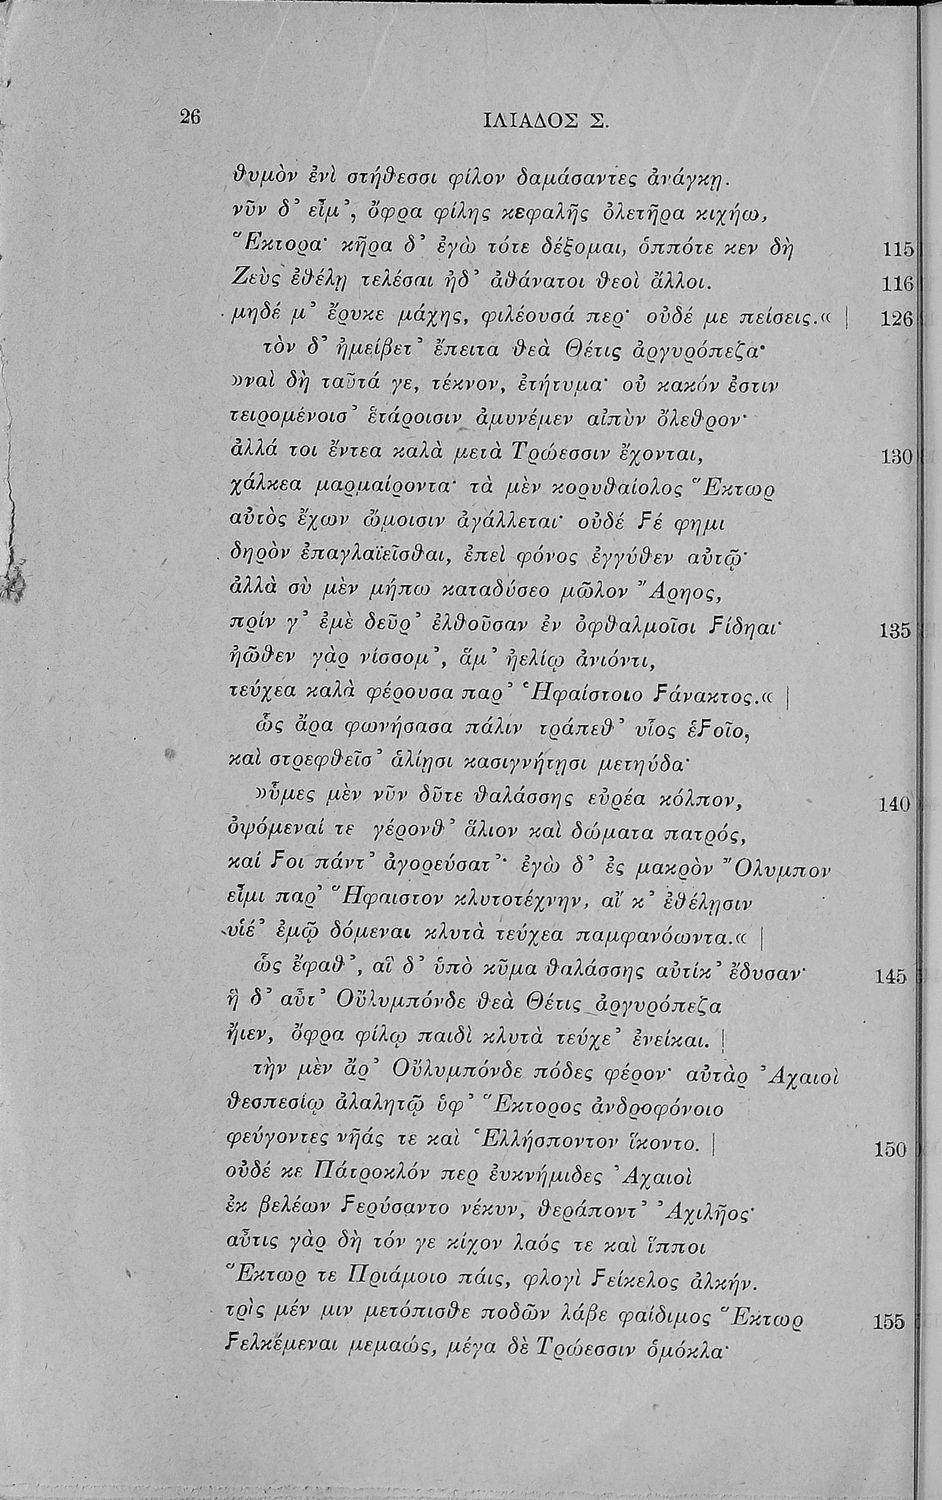 26 ΙΛΙΑΔΟΣ Σ.
θυμὸν ἐνὶ στήθεσσι φίλον δαμάσαντες ἀνάγκῃ.
νῦν δ᾽ εἶμ᾽, ὄφρα φίλης κεφαλῆς ὀλετῆρα κιχήω,
Ἕκτορα· κῆρα δ᾽ ἐγὼ τότε δέξομαι, ὁππότε κεν δὴ 115
Ζεὺς ἐθέλῃ τελέσαι ἠδ᾽ ἀθάνατοι θεοὶ ἄλλοι. 116
μηδέ μ᾽ ἔρυκε μάχης, φιλέουσά περ· οὐδέ με πείσεις.« | 126
τὸν δ᾽ ἠμείβετ᾽ ἔπειτα θεὰ Θέτις ἀργυρόπεζα·
»ναὶ δὴ ταῦτά γε, τέκνον, ἐτήτυμα· οὐ κακόν ἐστιν
τειρομένοισ᾽ ἑτάροισιν ἀμυνέμεν αἰπὺν ὄλεθρον·
ἀλλά τοι ἔντεα καλὰ μετὰ Τρώεσσιν ἔχονται, 130
χάλκεα μαρμαίροντα· τὰ μὲν κορυθαίολος Ἕκτωρ
αὐτὸς ἔχων ὤμοισιν ἀγάλλεται· οὐδέ Ϝέ φημι
δηρὸν ἐπαγλαϊεῖσθαι, ἐπεὶ φόνος ἐγγύθεν αὐτῷ·
ἀλλὰ σὺ μὲν μήπω καταδύσεο μῶλον Ἄρηος,
πρίν γ᾽ ἐμὲ δεῦρ᾽ ἐλθοῦσαν ἐν ὀφθαλμοῖσι Ϝίδηαι· 135
ἠῶθεν γὰρ νίσσομ᾽, ἅμ᾽ ἠελίῳ ἀνιόντι,
τεύχεα καλὰ φέρουσα παρ᾽ Ἡφαίστοιο Ϝάνακτος.« |
ὣς ἄρα φωνήσασα πάλιν τράπεθ᾽ υἷος ἑϜοῖο,
καὶ στρεφθεῖσ᾽ ἁλίῃσι κασιγνήτῃσι μετηύδα·
»ὗμες μὲν νῦν δῦτε θαλάσσης εὐρέα κόλπον, 140
ὀψόμεναί τε γέρονθ᾽ ἅλιον καὶ δώματα πατρός,
καί Ϝοι πάντ᾽ ἀγορεύσατ᾽· ἐγὼ δ᾽ ἐς μακρὸν Ὄλυμπον
εἶμι παρ᾽ Ἥφαιστον κλυτοτέχνην, αἴ κ᾽ ἐθέλῃσιν
υἱέ᾽ ἐμῷ δόμεναι κλυτὰ τεύχεα παμφανόωντα.« |
ὣς ἔφαθ᾽, αἳ δ᾽ ὑπὸ κῦμα θαλάσσης αὐτίκ᾽ ἔδυσαν· 145
ἣ δ᾽ αὖτ᾽ Οὔλυμπόνδε θεὰ Θέτις ἀργυρόπεζα
ἤιεν, ὄφρα φίλῳ παιδὶ κλυτὰ τεύχε᾽ ἐνείκαι. |
τὴν μὲν ἄρ᾽ Οὔλυμπόνδε πόδες φέρον· αὐτὰρ Ἀχαιοὶ
θεσπεσίῳ ἀλαλητῷ ὑφ᾽ Ἕκτορος ἀνδροφόνοιο
φεύγοντες νῆάς τε καὶ Ἑλλήσποντον ἵκοντο. | 150
οὐδέ κε Πάτροκλόν περ ἐυκνήμιδες Ἀχαιοὶ
ἐκ βελέων Ϝερύσαντο νέκυν, θεράποντ᾽ Ἀχιλῆος·
αὖτις γὰρ δὴ τόν γε κίχον λαός τε καὶ ἵπποι
Ἕκτωρ τε Πριάμοιο πάις, φλογὶ Ϝείκελος ἀλκήν.
τρὶς μέν μιν μετόπισθε ποδῶν λάβε φαίδιμος Ἕκτωρ 155
Ϝελκέμεναι μεμαώς, μέγα δὲ Τρώεσσιν ὁμόκλα·